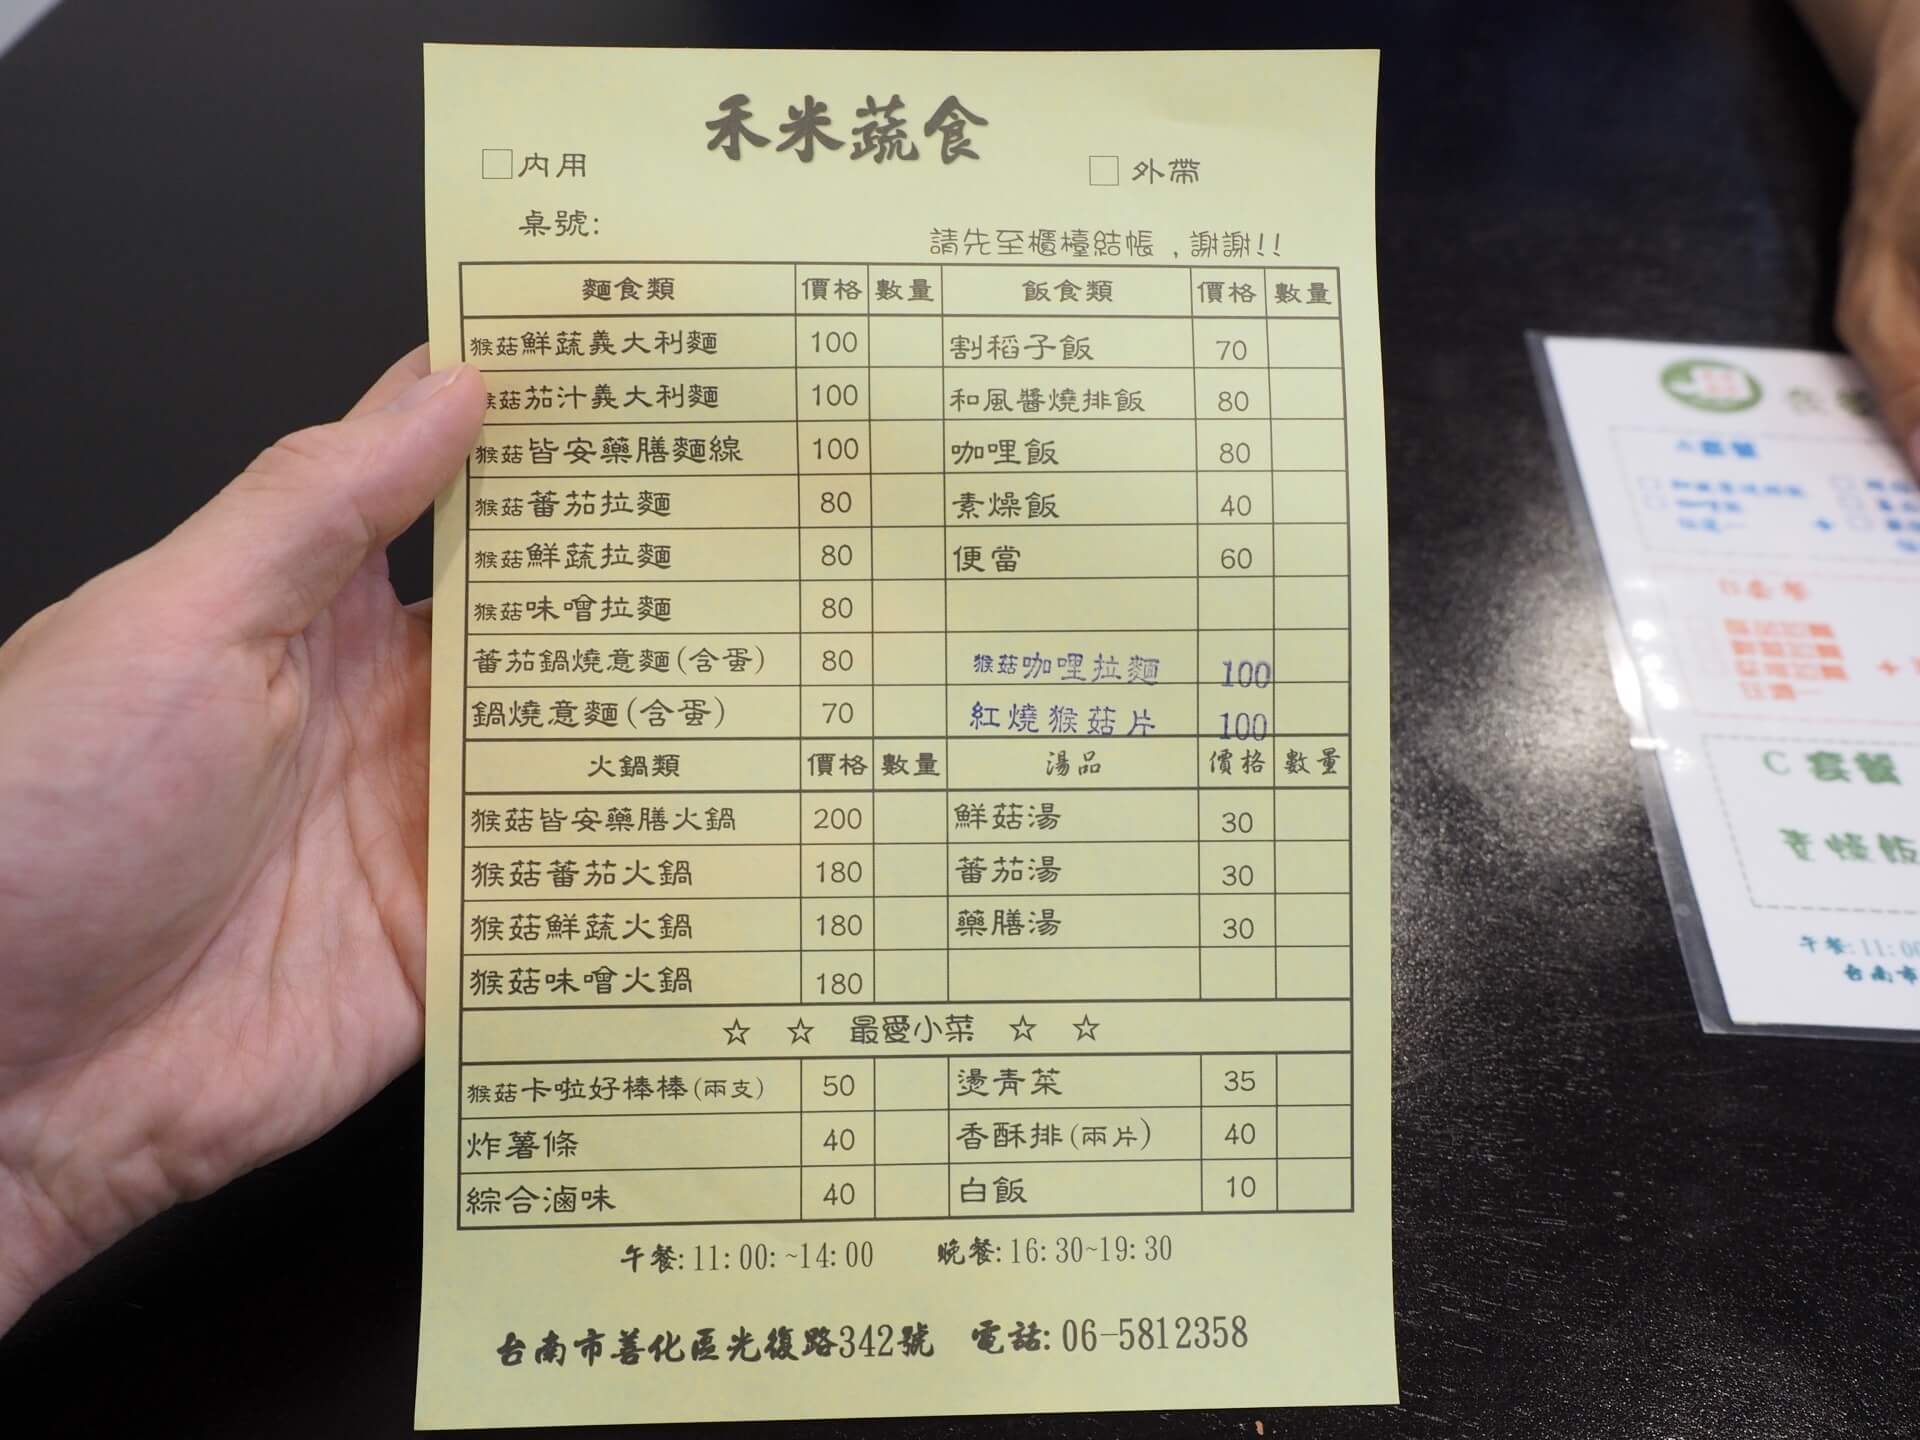 禾米蔬食
□內用 □ 外帶
桌號:
請先至櫃檯結帳，謝謝!!
麵食類 價格 數量 飯食類 價格 數量
猴菇鮮蔬義大利麵 100 割稻子飯 70
猴菇茄汁義大利麵 100 和風醬燒排飯 80
猴菇皆安藥膳麵線 100 咖哩飯 80
猴菇蕃茄拉麵 80 素燥飯 40
猴菇鮮蔬拉麵 80 便當 60
猴菇味噌拉麵 80
蕃茄鍋燒意麵(含蛋) 80 猴菇咖哩拉麵 100
鍋燒意麵(含蛋) 70 紅燒猴菇片 100
火鍋類 價格 數量 湯品 價格 數量
猴菇皆安藥膳火鍋 200 鮮菇湯 30
猴菇蕃茄火鍋 180 蕃茄湯 30
猴菇鮮蔬火鍋 180 藥膳湯 30
猴菇味噌火鍋 180
☆ ☆ 最愛小菜 ☆ ☆
猴菇卡啦好棒棒(兩支) 50 燙青菜 35
炸薯條 40 香酥排(兩片) 40
綜合滷味 40 白飯 10
午餐:11:00:~14:00 晚餐:16:30~19:30
台南市善化區光復路342號 電話:06-5812358
A套餐
B套餐
C套餐
午餐:11:00
台南市